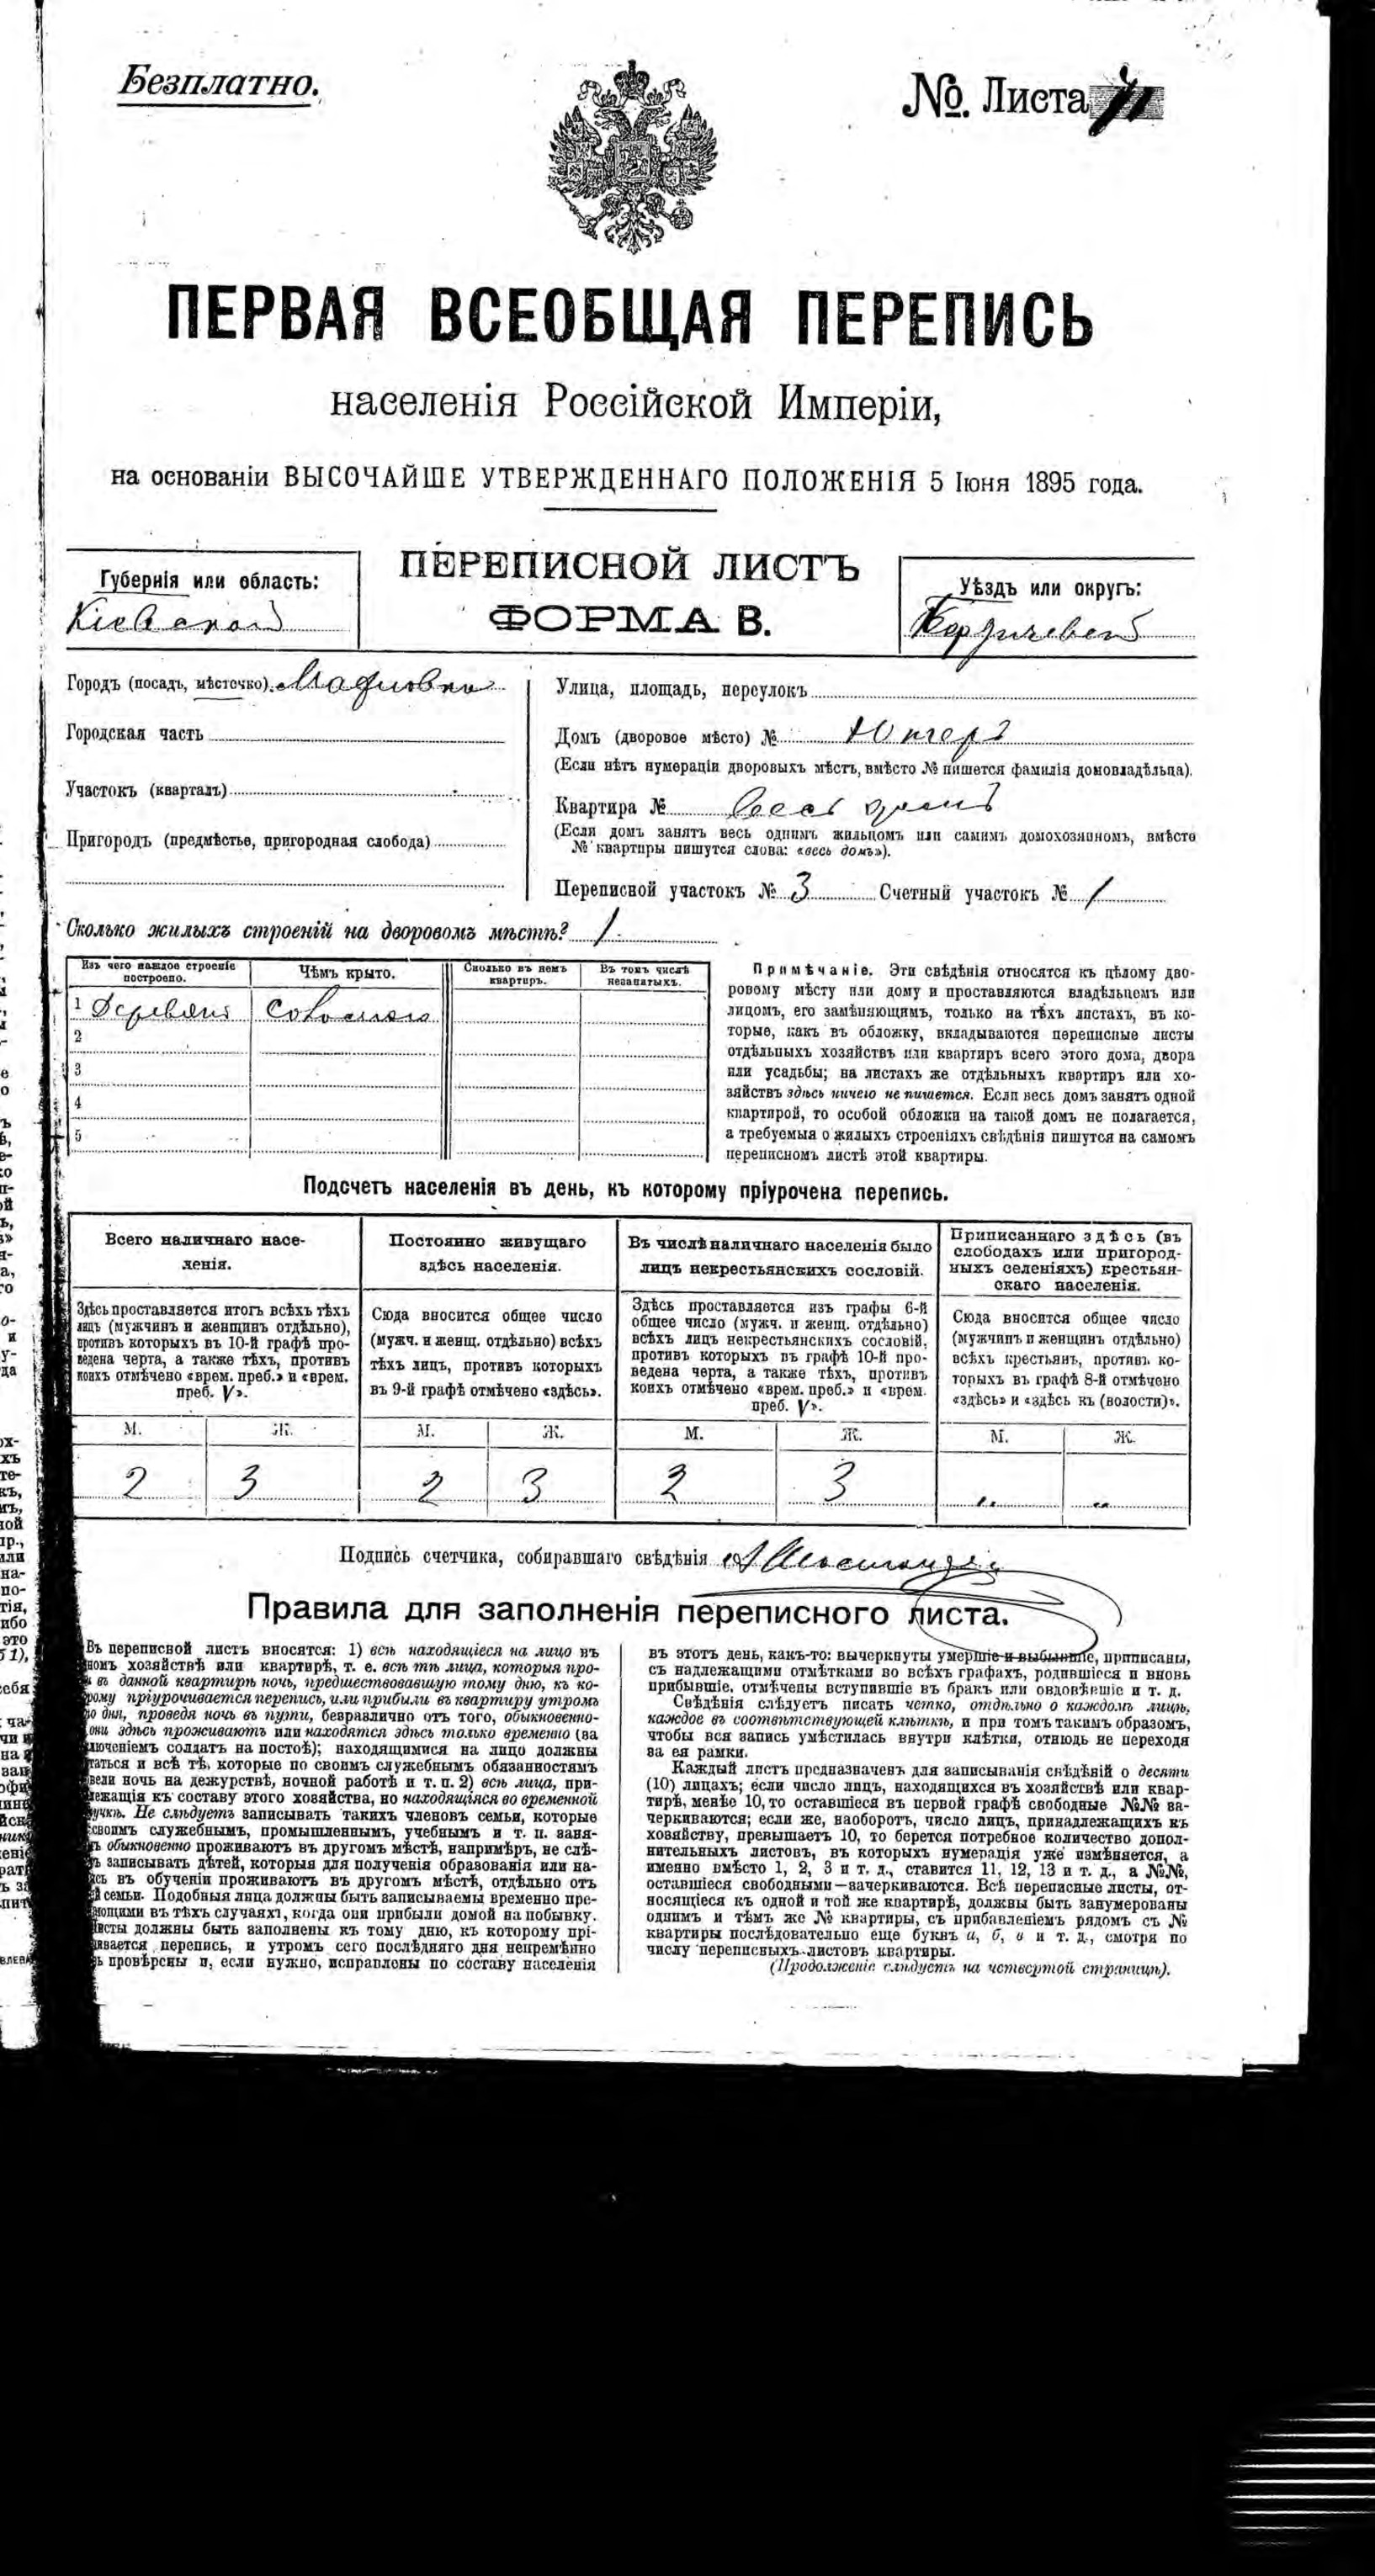 Безплатно.
№. Листа
ПЕРВАЯ ВСЕОБЩАЯ ПЕРЕПИСЬ
населенія Россійской Имперіи,
на основаніи ВЫСОЧАЙШЕ УТВЕРЖДЕННАГО ПОЛОЖЕНІЯ 5 Іюня 1895 года.
ПЕРЕПИСНОЙ ЛИСТЪ
ФОРМА В.
Губернія или область:
Кіевской
Уѣздъ или округъ:
Бердичевск
Городъ (посадъ, мѣстечко)
Городская часть
Участокъ (кварталъ)
Пригородъ (предмѣстье, пригородная слобода)
Улица, площадь, переулокъ
Домъ (дворовое мѣсто) №
(Если нѣтъ нумераціи дворовыхъ мѣстъ, вмѣсто № пишется фамилія домовладѣльца).
Квартира № весь домъ
(Если домъ занятъ весь однимъ жильцомъ или самимъ домохозяиномъ, вмѣсто
№ квартиры пишутся слова: «весь домъ»).
Переписной участокъ № 3 Счетный участокъ № 1
Сколько жилыхъ строеній на дворовомъ мѣстѣ? 1
Изъ чего каждое строеніе
построено.
Чѣмъ крыто.
Сколько въ немъ
квартиръ.
Въ томъ числѣ
незанятыхъ.
1 Деревян Соломою
2
3
4
5
Примѣчаніе. Эти свѣдѣнія относятся къ цѣлому дво-
ровому мѣсту или дому и проставляются владѣльцемъ или
лицомъ, его замѣняющимъ, только на тѣхъ листахъ, въ ко-
торые, какъ въ обложку, вкладываются переписные листы
отдѣльныхъ хозяйствъ или квартиръ всего этого дома, двора
или усадьбы; на листахъ же отдѣльныхъ квартиръ или хо-
зяйствъ здѣсь ничего не пишется. Если весь домъ занятъ одной
квартирой, то особой обложки на такой домъ не полагается,
а требуемыя о жилыхъ строеніяхъ свѣдѣнія пишутся на самомъ
переписномъ листѣ этой квартиры.
Подсчетъ населенія въ день, къ которому пріурочена перепись.
Всего наличнаго насе-
ленія.
Здѣсь проставляется итогъ всѣхъ тѣхъ
лицъ (мужчинъ и женщинъ отдѣльно),
противъ которыхъ въ 10-й графѣ про-
ведена черта, а также тѣхъ, противъ
коихъ отмѣчено «врем. преб.» и «врем.
преб. V».
Постоянно живущаго
здѣсь населенія.
Сюда вносится общее число
(мужч. и женщ. отдѣльно) всѣхъ
тѣхъ лицъ, противъ которыхъ
въ 9-й графѣ отмѣчено «здѣсь».
Въ числѣ наличнаго населенія было
лицъ некрестьянскихъ сословій.
Здѣсь проставляется изъ графы 6-й
общее число (мужч. и женщ. отдѣльно)
всѣхъ лицъ некрестьянскихъ сословій,
противъ которыхъ въ графѣ 10-й про-
ведена черта, а также тѣхъ, противъ
коихъ отмѣчено «врем. преб.» и «врем.
преб. V».
Приписаннаго здѣсь (въ
слободахъ или пригород-
ныхъ селеніяхъ) крестьян-
скаго населенія.
Сюда вносится общее число
(мужчинъ и женщинъ отдѣльно)
всѣхъ крестьянъ, противъ ко-
торыхъ въ графѣ 8-й отмѣчено
«здѣсь» и «здѣсь къ (волости)».
М. Ж. М. Ж. М. Ж. М. Ж.
2 3 2 3 2 3 „ „
Подпись счетчика, собиравшаго свѣдѣнія
Правила для заполненія переписного листа.
Въ переписной листъ вносятся: 1) всѣ находящіеся на лицо въ
хозяйствѣ или квартирѣ, т. е. всѣ тѣ лица, которыя про-
въ данной квартирѣ ночь, предшествовавшую тому дню, къ ко-
пріурочивается перепись, или прибыли въ квартиру утромъ
дня, проведя ночь въ пути, безразлично отъ того, обыкновенно-
они здѣсь проживаютъ или находятся здѣсь только временно (за
солдатъ на постоѣ); находящимися на лицо должны
и всѣ тѣ, которые по своимъ служебнымъ обязанностямъ
ночь на дежурствѣ, ночной работѣ и т. п. 2) всѣ лица, при-
къ составу этого хозяйства, но находящіяся во временной
Не слѣдуетъ записывать такихъ членовъ семьи, которые
своимъ служебнымъ, промышленнымъ, учебнымъ и т. п. заня-
обыкновенно проживаютъ въ другомъ мѣстѣ, напримѣръ, не слѣ-
записывать дѣтей, которыя для полученія образованія или на-
въ обученіи проживаютъ въ другомъ мѣстѣ, отдѣльно отъ
семьи. Подобныя лица должны быть записываемы временно пре-
въ тѣхъ случаяхъ, когда они прибыли домой на побывку.
должны быть заполнены къ тому дню, къ которому прі-
перепись, и утромъ сего послѣдняго дня непремѣнно
провѣрены и, если нужно, исправлены по составу населенія
въ этотъ день, какъ-то: вычеркнуты умершіе и выбывшіе, приписаны,
съ надлежащими отмѣтками во всѣхъ графахъ, родившіеся и вновь
прибывшіе, отмѣчены вступившіе въ бракъ или овдовѣвшіе и т. д.
Свѣдѣнія слѣдуетъ писать четко, отдѣльно о каждомъ лицѣ,
каждое въ соотвѣтствующей клѣткѣ, и при томъ такимъ образомъ,
чтобы вся запись умѣстилась внутри клѣтки, отнюдь не переходя
за ея рамки.
Каждый листъ предназначенъ для записыванія свѣдѣній о десяти
(10) лицахъ; если число лицъ, находящихся въ хозяйствѣ или квар-
тирѣ, менѣе 10, то оставшіеся въ первой графѣ свободные №№ за-
черкиваются; если же, наоборотъ, число лицъ, принадлежащихъ къ
хозяйству, превышаетъ 10, то берется потребное количество допол-
нительныхъ листовъ, въ которыхъ нумерація уже измѣняется, а
именно вмѣсто 1, 2, 3 и т. д., ставится 11, 12, 13 и т. д., а №№,
оставшіеся свободными—зачеркиваются. Всѣ переписные листы, от-
носящіеся къ одной и той же квартирѣ, должны быть занумерованы
однимъ и тѣмъ же № квартиры, съ прибавленіемъ рядомъ съ №
квартиры послѣдовательно еще буквъ а, б, в и т. д., смотря по
числу переписныхъ листовъ квартиры.
(Продолженіе слѣдуетъ на четвертой страницѣ).